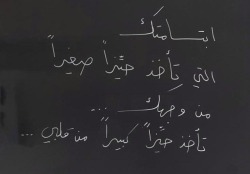 ابتسامتك
التي تأخذ حيّزاً صغيراً
من وجهك ...
تأخذ حيّزاً كبيراً من قلبي ...